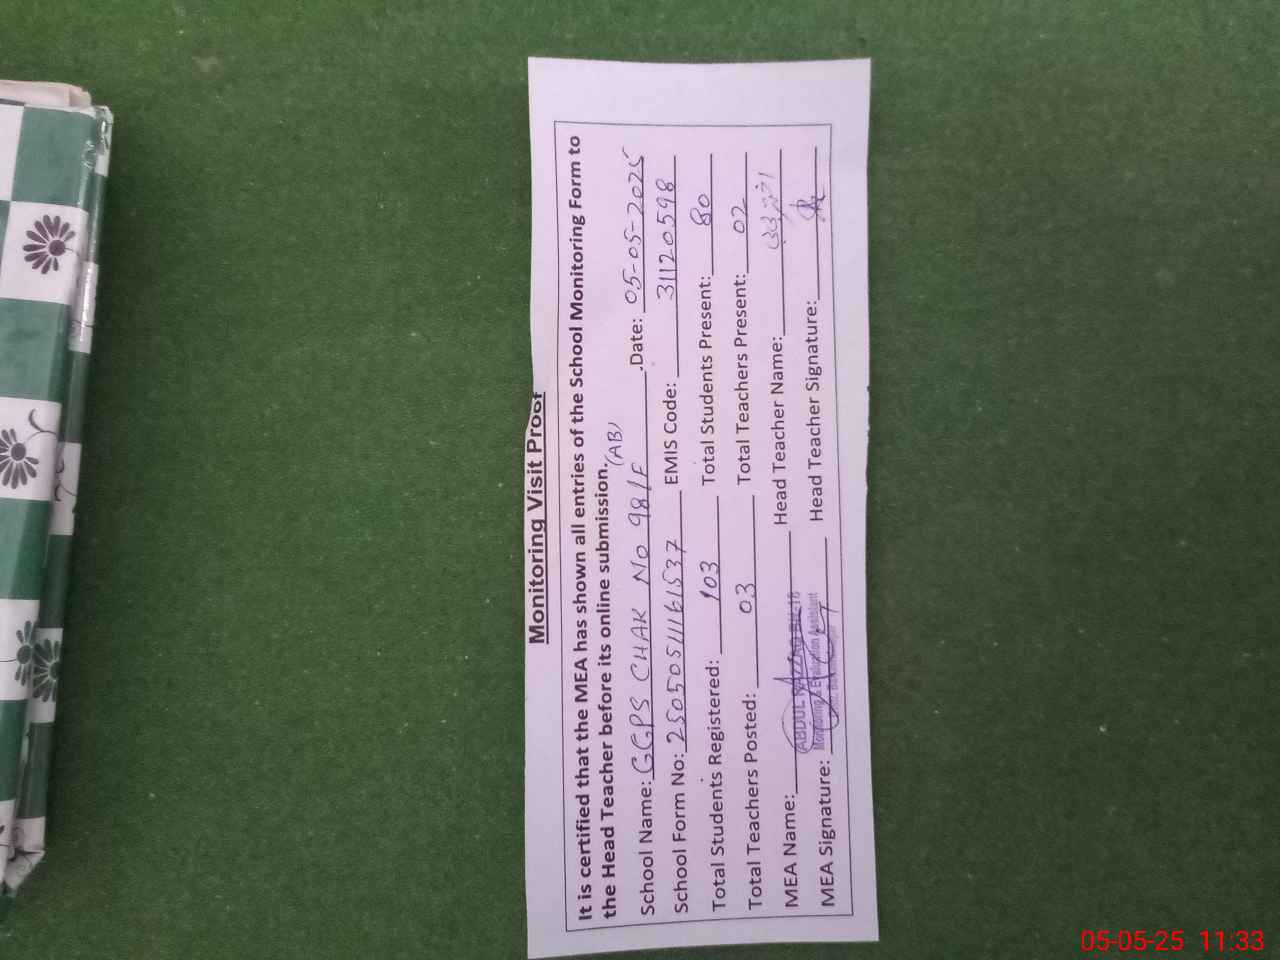 Monitoring Visit Proof
It is certified that the MEA has shown all entries of the School Monitoring Form to
the Head Teacher before its online submission.
School Name: GGPS CHAK No 98/F (AB) Date: 05-05-2025
School Form No: 250505111161537 EMIS Code: 31120598
Total Students Registered: 103 Total Students Present: 80
Total Teachers Posted: 03 Total Teachers Present: 02
MEA Name: ABDUL RAZZAQ Head Teacher Name:
Monitoring & Evaluation Assistant
MEA Signature: Head Teacher Signature:
05-05-25 11:33